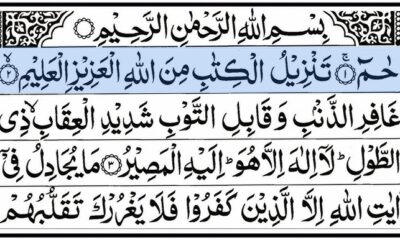 بِسْمِ اللهِ الرَّحْمٰنِ الرَّحِيْمِ
حٰمٓ ۚ﴿۱﴾ تَنْزِيْلُ الْكِتٰبِ مِنَ اللهِ الْعَزِيْزِ الْعَلِيْمِ ۙ﴿۲﴾
غَافِرِ الذَّنْۢبِ وَ قَابِلِ التَّوْبِ شَدِيْدِ الْعِقَابِ ۙ ذِى
الطَّوْلِ ؕ لَاۤ اِلٰهَ اِلَّا هُوَ ؕ اِلَيْهِ الْمَصِيْرُ ﴿۳﴾ مَا يُجَادِلُ فِىْۤ
اٰيٰتِ اللهِ اِلَّا الَّذِيْنَ كَفَرُوْا فَلَا يَغْرُرْكَ تَقَلُّبُهُمْ